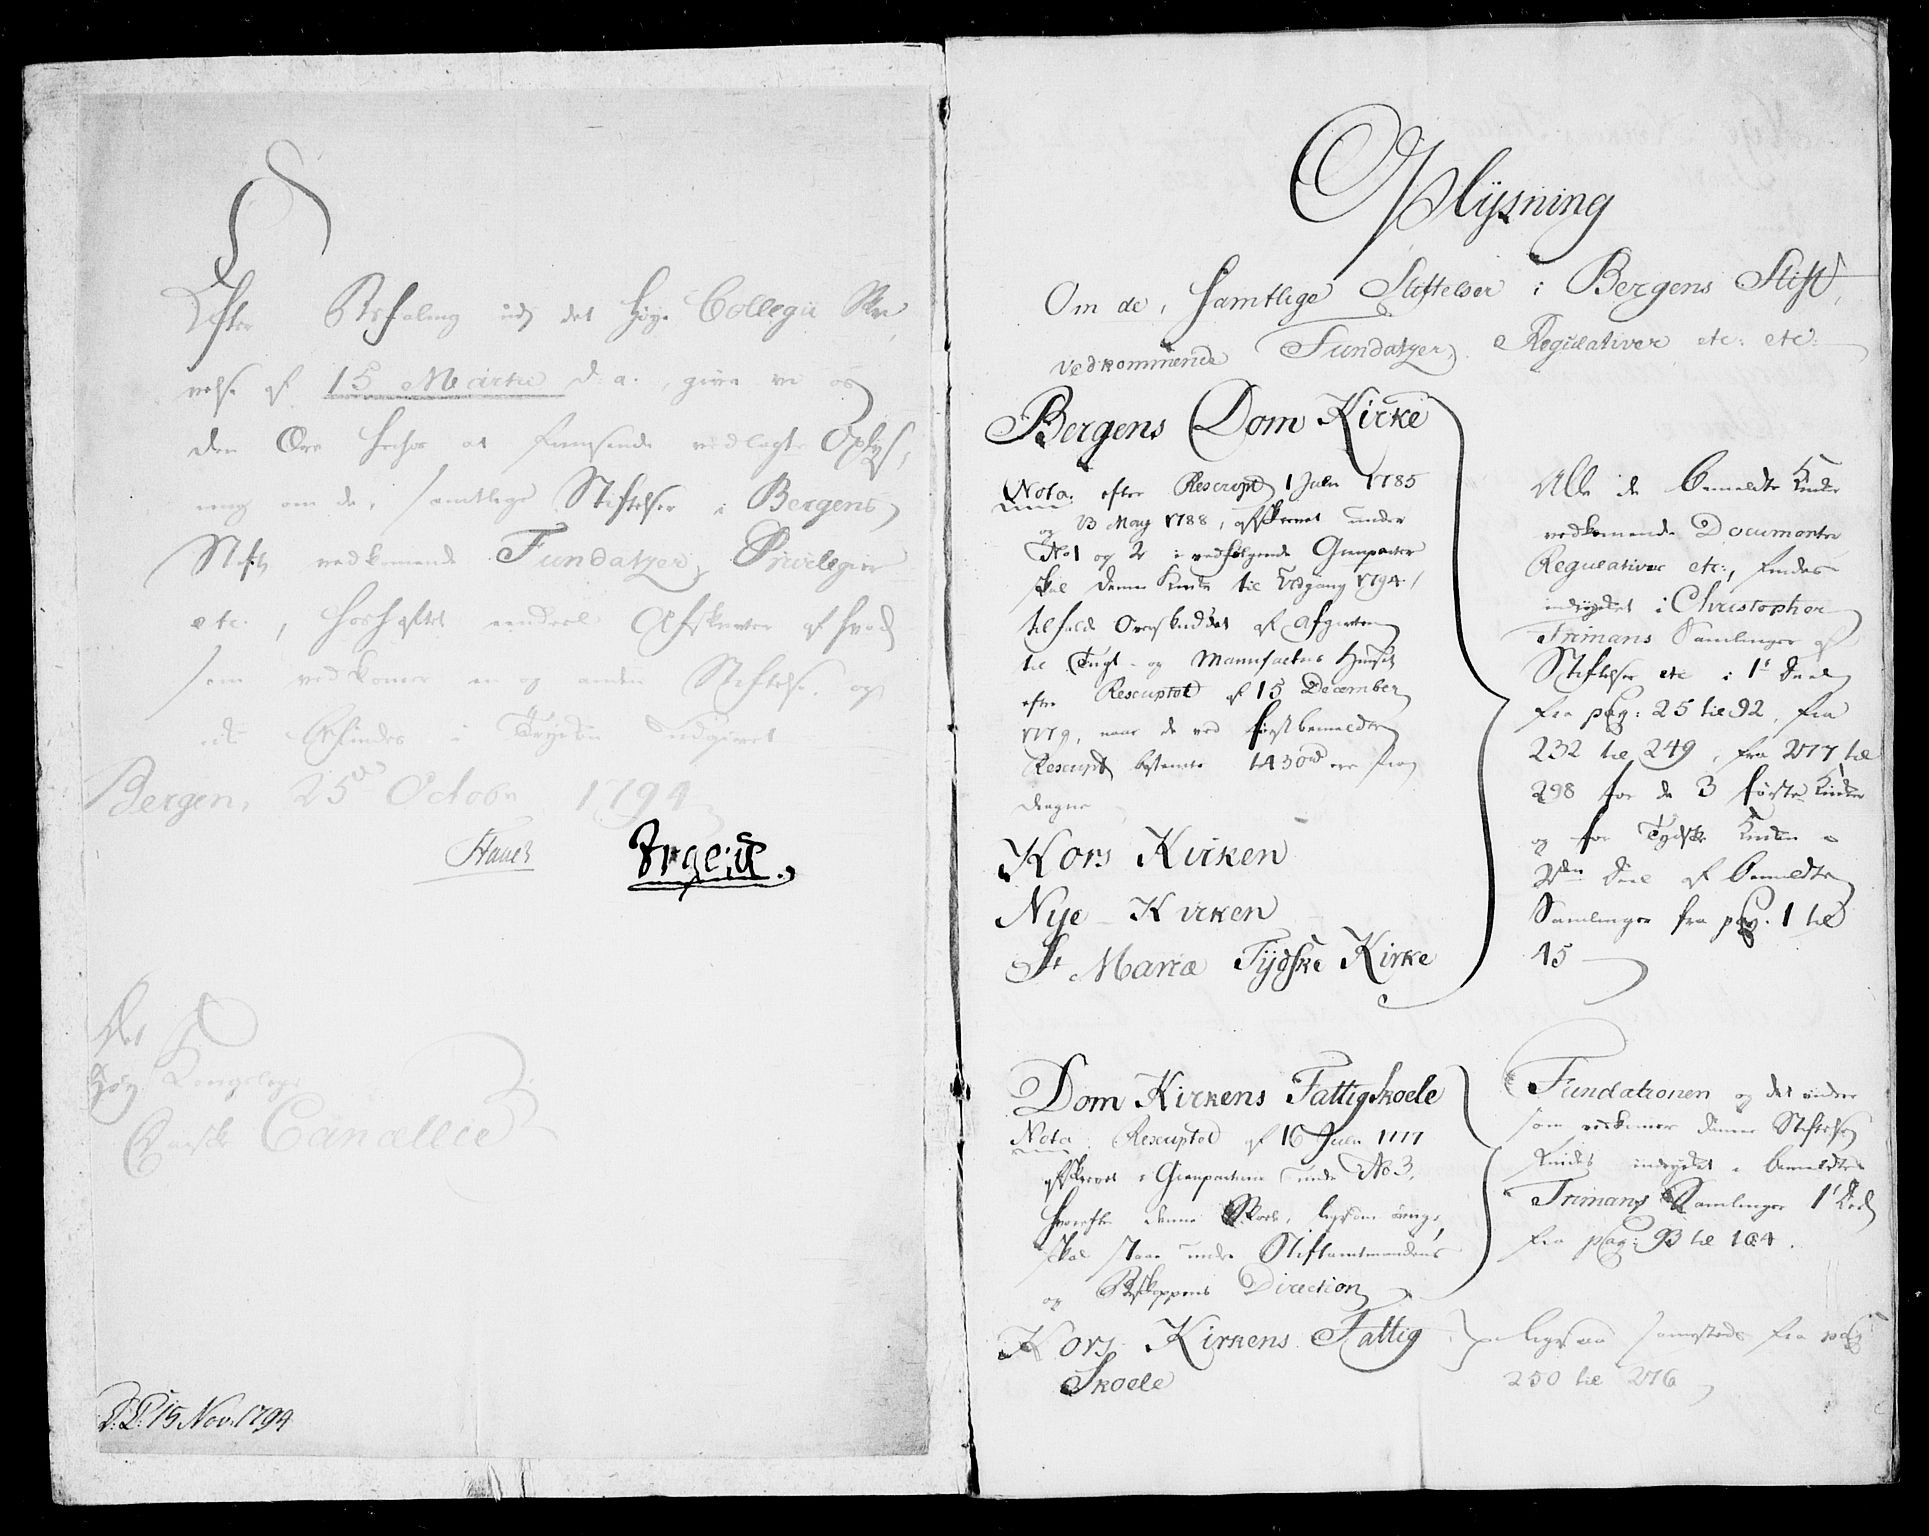 Efter Befaling udj det høye Collegii Skri-
velse af 15 Martii d: a:, give vi os
den Ære herhos at fremsende vedlagte Oplys-
ning om de, samtlige Stiftelser i Bergens
Stift vedkomende Fundatzer, Privilegier
etc:, hoshæftet endeel Afskrivter af hvad
som vedkomer en og anden Stiftelse, og
ei befindes i Trykken udgivet
Bergen, 25de Octobr 1794
Hauch
Det
Høy Kongelige
Danske Cancellie
P: L: 15 Nov. 1794
Oplysning
Om de, Samtlige Stiftelser i Bergens Stift,
vedkommende Fundatzer, Regulativer etc: etc:
Bergens Dom Kirke
Nota: efter Rescript 1 Julii 1785
og 23 May 1788, afskrevet under
No 1 og 2 i vedfølgende Gienparter
skal denne Kirke til Udgang 1794
tilfalde Overskuddet af Afgivten
til Tugt- og Manufactur Huset
efter Rescriptet af 15 December
1779, naar de ved førstbemeldte
Rescript bestemte 1430 rd ere fra-
dragne
Kors Kirken
Nye Kirken
St Mariæ Tydske Kirke
Alle de bemeldte Kirker
vedkomende Documenter
Regulativer etc:, findes
indrykket i Christopher
Frimans Samlinger af
Stiftelser etc i 1te Deel
fra pag: 25 til 92, fra
232 til 249, fra 277 til
298 for de 3 første Kirker
og for Tydske Kirken i
2den Deel af bemeldte
Samlinger fra pag. 1 til
45
Dom Kirkens Fattig Skoele
Nota Rescriptet af 16 Julii 1777
afskrevet i Gienparterne under No 3,
hvorefter denne Skole, ligesom
skal staae under Stiftamtmandens
og Biskoppens Direction
Fundationen og det videre
som vedkomer denne Stiftelse
findes indrykket i bemeldte
Frimans Samlinger 1te Deel
fra pag: 93 til 104.
Kors Kirkens Fattig
Skoele
ligesaa samesteds fra pag
250 til 276